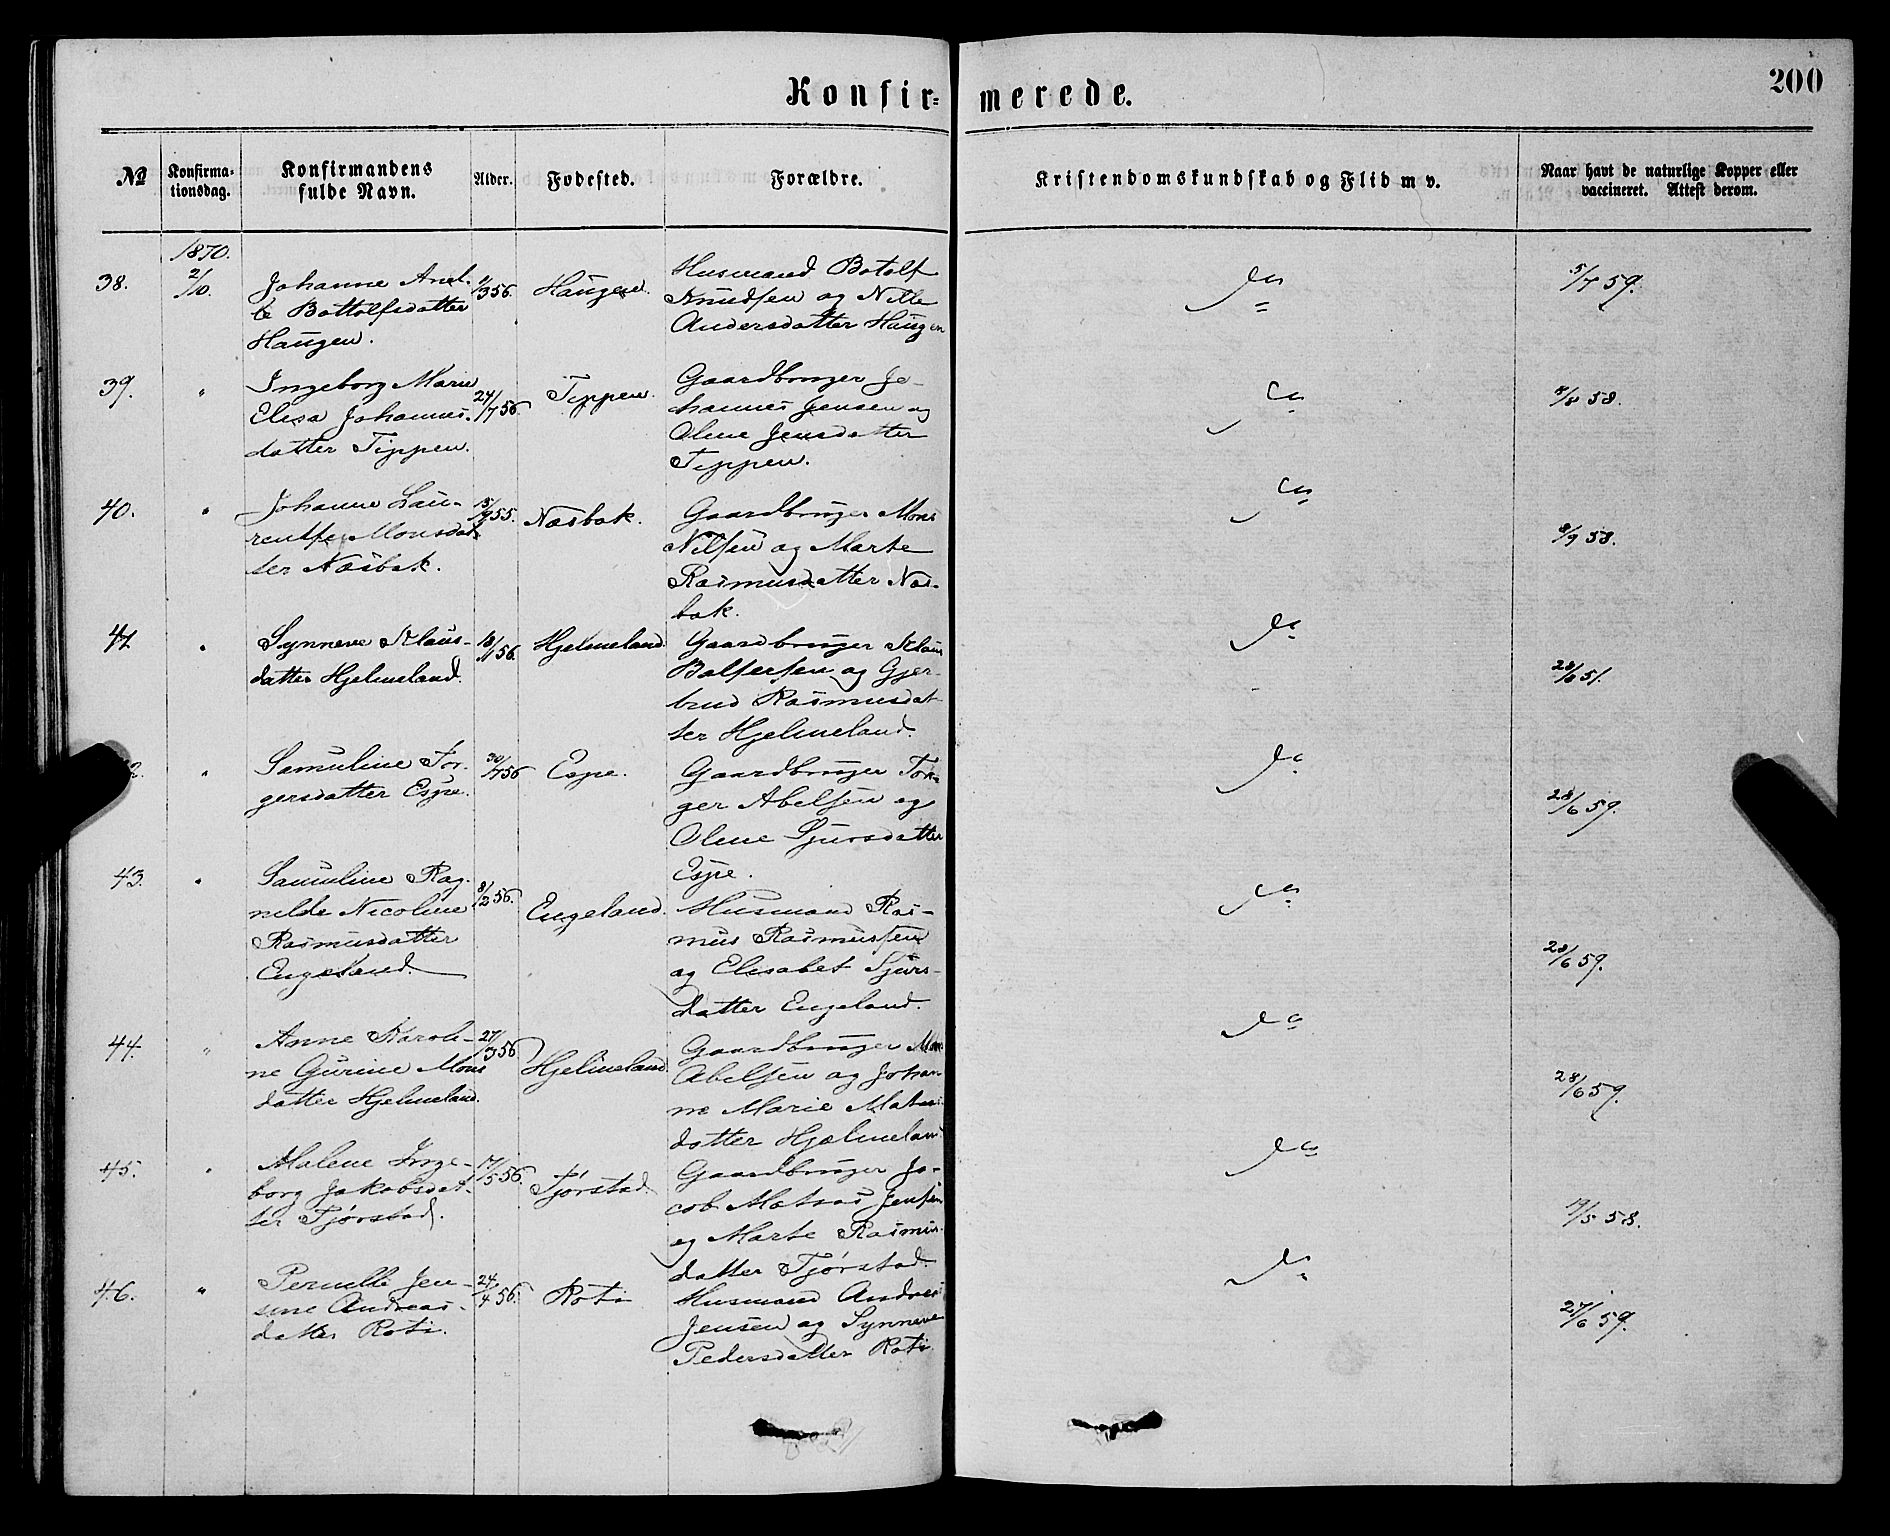 Konfir=
merede.
200
№
Konfirma-
tionsdag.
Konfirmandens
fulde Navn.
Alder.
Fødested.
Forældre.
Kristendomskundskab og Flid m v.
Naar havt de naturlige Kopper eller
vaccineret. Attest derom.
1870.
38.
2/10.
Johanne
Bottolfsdatter
Haugen.
Haugen.
Husmand Botolf
Knudsen og Nille
Andersdatter Haugen
5/7 59.
39.
"
Ingeborg Marie
Elesa Johannes-
datter Tippen.
24/7 56.
Tippen.
Gaardbruger Jo-
hannes Jensen og
Olene Jensdatter
Tippen.
58.
40.
"
Johanne Lau-
rentse Monsdat-
ter Næsbak.
55.
Næsbak.
Gaardbruger Mons
Nilsen og Marte
Rasmusdatter Næs-
bak.
8/9 58.
41
"
Synneve Klaus-
datter Hjelmeland.
56.
Hjelmeland
Gaardbruger Klaus
Balsersen og Gjer-
trud Rasmusdat-
ter Hjelmeland.
2.
"
Samuline Tor-
gersdatter Espe.
56
Espe.
Gaardbruger Tor-
ger Abelsen og
Olene Sjursdatter
Espe.
28/6 59.
43.
"
Samuline Rag-
nilde Nicoline
Rasmusdatter
Engeland.
8/2 56.
Engeland.
Husmand Ras-
mus Rasmussen
og Elisabet Sjurs-
datter Engeland.
28/6 59.
44.
"
Anne Karoli-
ne Gurine Mons
datter Hjelmeland.
27/3 56
Hjelmeland.
Gaardbruger Mons
Abelsen og Johan-
ne Marie Mats-
datter Hjælmeland
28/6 59.
45.
"
Malene Inge-
borg Jakobsdat-
ter Tjørstad.
17/5 56.
Tjørstad.
Gaardbruger Ja-
cob Matias Jensen
og Marte Rasmus-
datter Tjørstad.
58.
46.
"
Pernille Jen-
sine Andreas-
datter Roti.
24/4 56.
Roti
Husmand Andreas
Jensen og Synneve
Pedersdatter Roti
27/6 59.